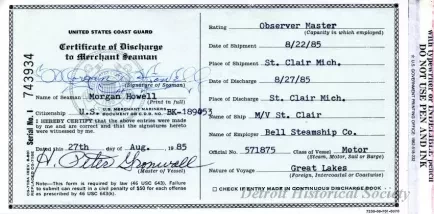 UNITED STATES COAST GUARD
Certificate of Discharge
to Merchant Seaman
(Signature of Seaman)
Name of Seaman Morgan Howell
(Print in full)
Citizenship U.S. U.S. MERCHANT MARINERS DOCUMENT OR C.D.B. NO. BK-189053
I HEREBY CERTIFY that the above entries were made by me and are correct and that the signatures hereto were witnessed by me.
Dated this 27th day of Aug. , 1985
(Master of Vessel)
Note—This form is required by law (46 USC 643). Failure to submit can result in a civil penalty of $50 for each offense as prescribed by 46 USC 643.
Serial No. 743934
Rating Observer Master
(Capacity in which employed)
Date of Shipment 8/22/85
Place of Shipment St. Clair Mich.
Date of Discharge 8/27/85
Place of Discharge St. Clair Mich.
Name of Ship M/V St. Clair
Name of Employer Bell Steamship Co.
Official No. 571875 Class of Vessel Motor
(Steam, Motor, Sail or Barge)
Nature of Voyage Great Lakes
(Foreign, Intercoastal or Coastwise)
CHECK IF ENTRY MADE IN CONTINUOUS DISCHARGE BOOK
Detroit Historical Society
DO NOT USE PEN AND INK